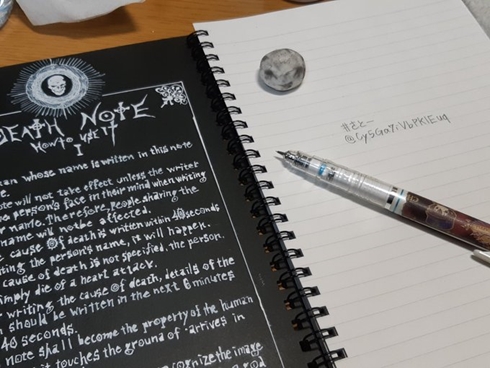 DEATH NOTE
HOW TO USE IT
I
an whose name is written in this note
note will not take effect unless the writer
person's face in their mind when writing
name. Therefore, people sharing the
name will not be affected.
cause of death is written within 40 seconds
iting the person's name, it will happen.
cause of death is not specified, the person
simply die of a heart attack.
writing the cause of death, details of the
h should be written in the next 6 minutes
40 seconds.
note shall become the property of the human
it touches the ground of, arrives in
ognize the image
god